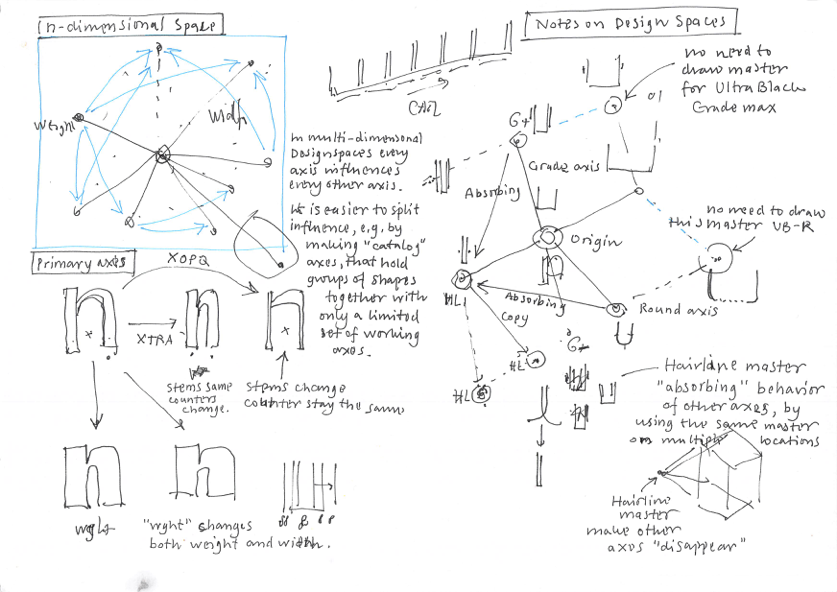 n-dimensional Space
Weight
Width
In multi-dimensional
Designspaces every
axis influences
every other axis.
It is easier to split
influence, e.g. by
making "catalog"
axes, that hold
groups of shapes
together with
only a limited
set of working
axes.
Primary axes
XOPQ
XTRA
stems same
counters
change.
stems change
counter stay the same
wght
"wght" changes
both weight and width.
Notes on Design Spaces
no need to
draw master
for Ultra Black
Grade max
G+
Grade axis
Absorbing
Origin
no need to draw
this master UB-R
HL
Absorbing
Copy
Round axis
G+
HL
HL
Hairline master
"absorbing" behavior
of other axes, by
using the same master
on multiple locations
Hairline
master
make other
axes "disappear"